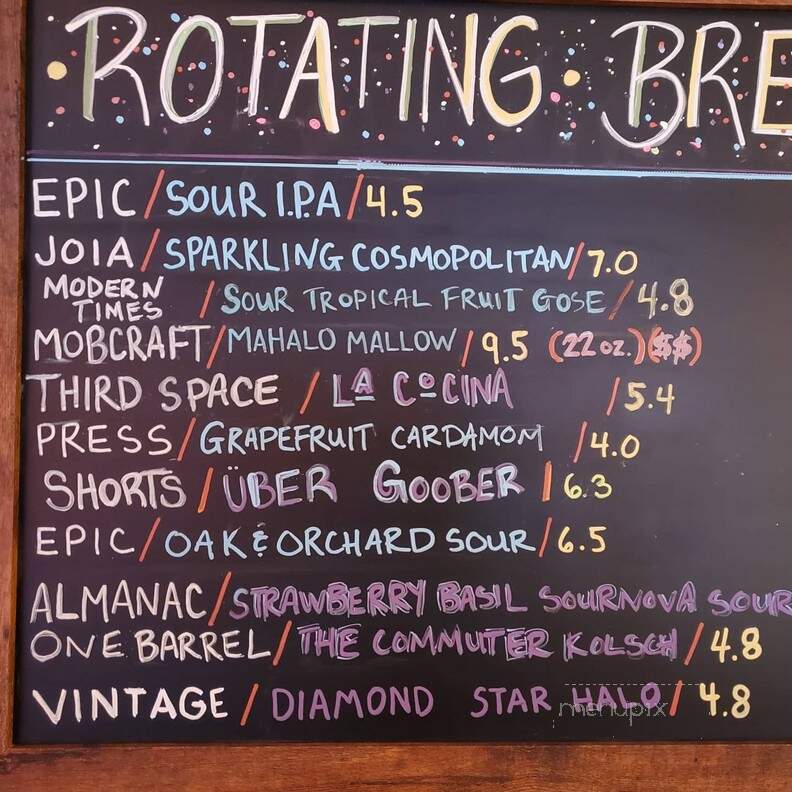 ·ROTATING·BRE
EPIC/SOUR I.P.A/4.5
JOIA/SPARKLING COSMOPOLITAN/7.0
MODERN TIMES /SOUR TROPICAL FRUIT GOSE/4.8
MOBCRAFT/MAHALO MALLOW/9.5 (22 oz.)($$)
THIRD SPACE / LA COCINA /5.4
PRESS/GRAPEFRUIT CARDAMOM /4.0
SHORTS/ÜBER GOOBER/6.3
EPIC/OAK & ORCHARD SOUR/6.5
ALMANAC/STRAWBERRY BASIL SOURNOVA SOUR
ONE BARREL/THE COMMUTER KOLSCH/4.8
VINTAGE/DIAMOND STAR HALO/4.8
menupix